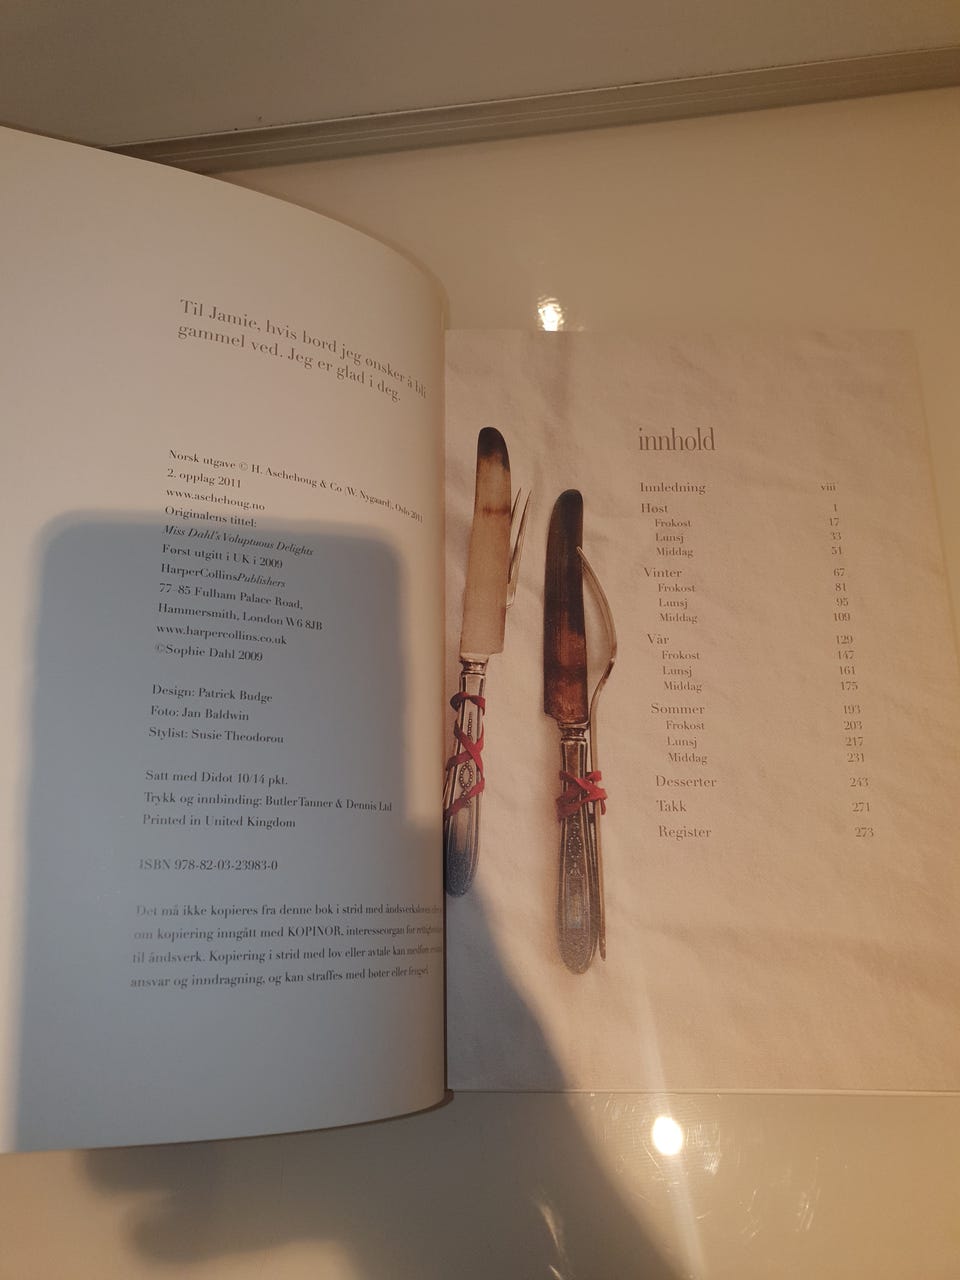 Til Jamie, hvis bord jeg ønsker å bli
gammel ved. Jeg er glad i deg.
Norsk utgave © H. Aschehoug & Co (W. Nygaard), Oslo 2011
2. opplag 2011
www.aschehoug.no
Originalens tittel:
Miss Dahl's Voluptuous Delights
Først utgitt i UK i 2009
HarperCollinsPublishers
77–85 Fulham Palace Road,
Hammersmith, London W6 8JB
www.harpercollins.co.uk
©Sophie Dahl 2009
Design: Patrick Budge
Foto: Jan Baldwin
Stylist: Susie Theodorou
Satt med Didot 10/14 pkt.
Trykk og innbinding: Butler Tanner & Dennis Ltd
Printed in United Kingdom
ISBN 978-82-03-23983-0
Det må ikke kopieres fra denne bok i strid med åndsverkloven
om kopiering inngått med KOPINOR, interesseorgan for
til åndsverk. Kopiering i strid med lov eller avtale kan medføre
ansvar og inndragning, og kan straffes med bøter eller fengsel.
innhold
Innledning viii
Høst 1
Frokost 17
Lunsj 33
Middag 51
Vinter 67
Frokost 81
Lunsj 95
Middag 109
Vår 129
Frokost 147
Lunsj 161
Middag 175
Sommer 193
Frokost 203
Lunsj 217
Middag 231
Desserter 243
Takk 271
Register 273